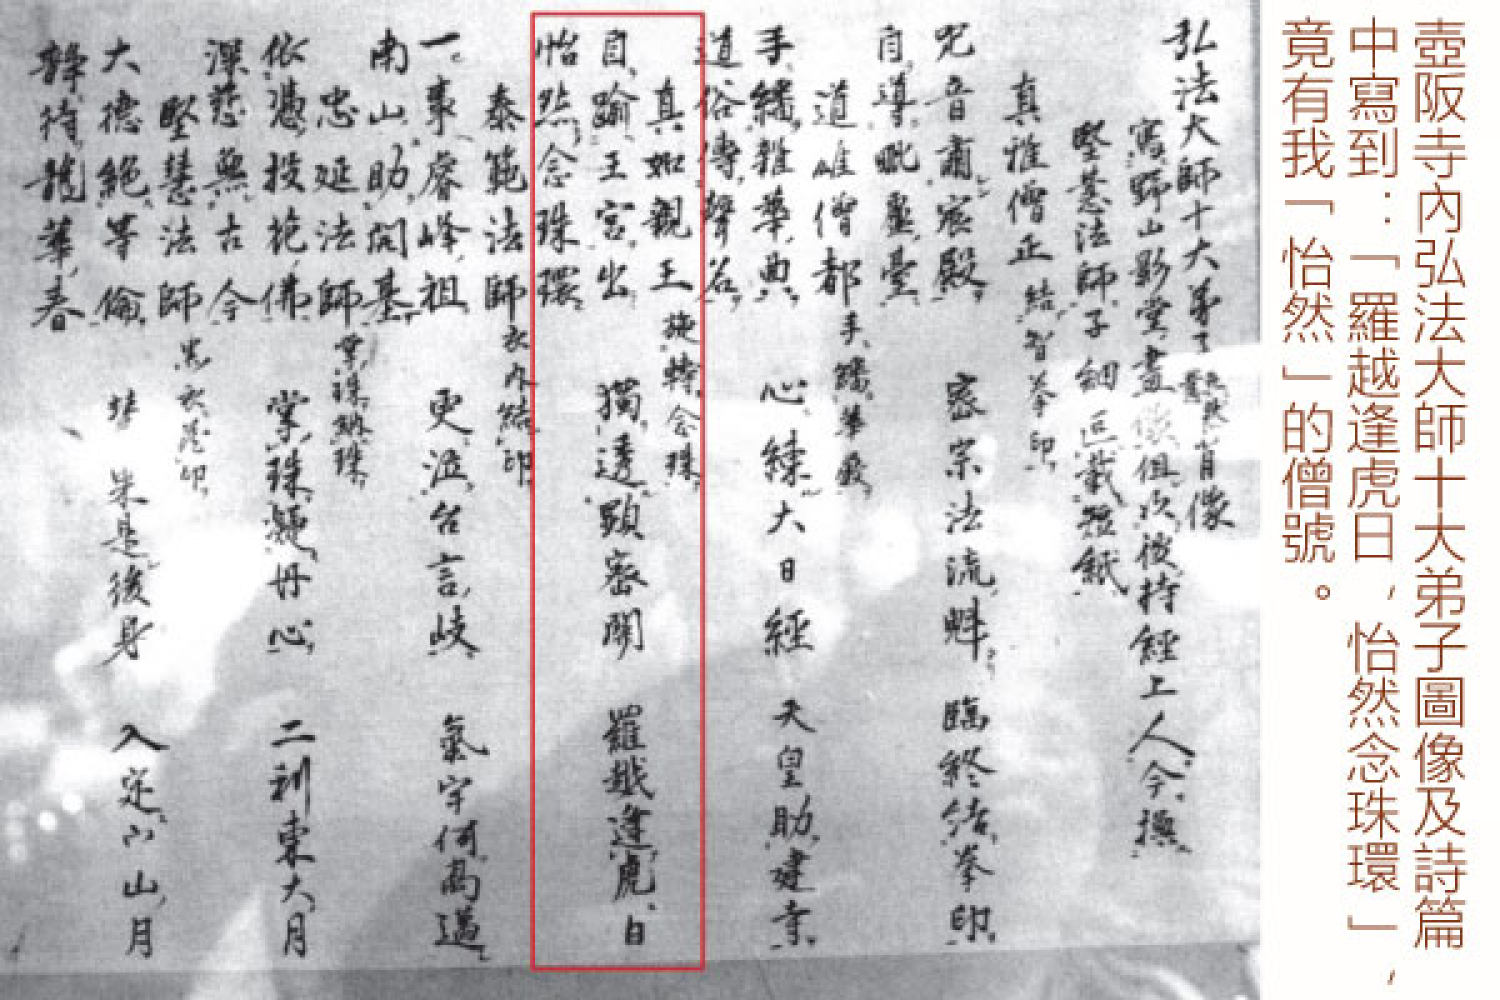 壺阪寺內弘法大師十大弟子圖像及詩篇
中寫到：「羅越逢虎日，怡然念珠環」，
竟有我「怡然」的僧號。
弘法大師十大弟子 肖像
寫野山影堂畫 俱次彼持經上人令摸
堅慧法師子細 載短紙
真雅僧正 結智拳印
咒音肅宸殿 密宗法流魁 臨終結拳印
自導毗盧臺
道雄僧都 手繙華嚴
手繙雜華典 心練大日經 天皇助建寺
道俗傳聲名
真如親王 旋轉念珠
自踰王宮出 獨透顯密關 羅越逢虎日
怡然念珠環
泰範法師 衣內結印
一乘睿峰祖 更泣台言岐 氣宇何高邁
南山助開基
忠延法師 掌珠納珠
依憑投花佛 掌珠麗丹心 二利東大月
深慈無古今
堅慧法師 衣 印
大德絕等倫 朱是後身 入定 山月
待龍華春